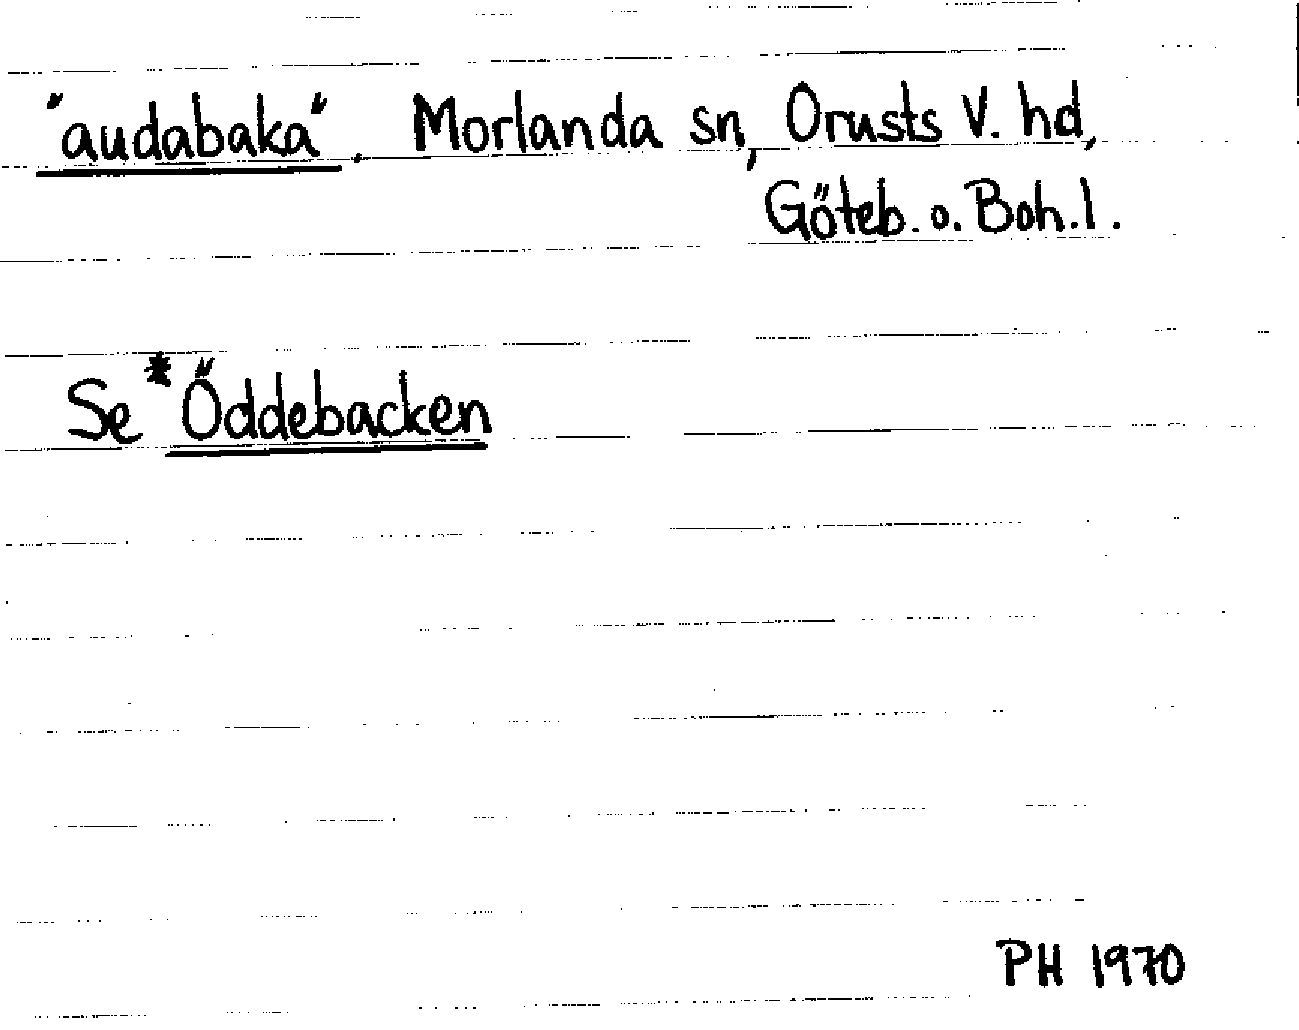 "audabaka". Morlanda sn, Orusts V. hd,
Göteb. o. Boh. l.
Se *Öddebacken
PH 1970